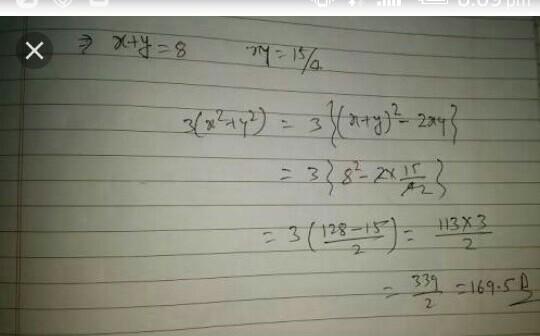 6:09 pm
⇒ x+y=8 xy=15/4
3(x²+y²) = 3{(x+y)²-2xy}
= 3{8²-2×15/4 2}
= 3(128-15/2) = 113×3/2
= 339/2 = 169.5